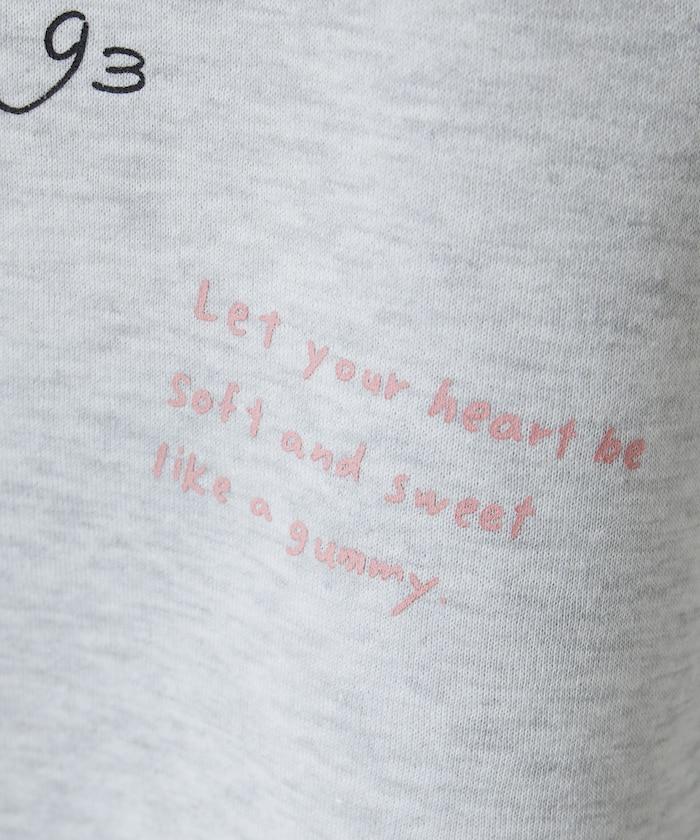 g3
Let your heart be
Soft and sweet
like a gummy.